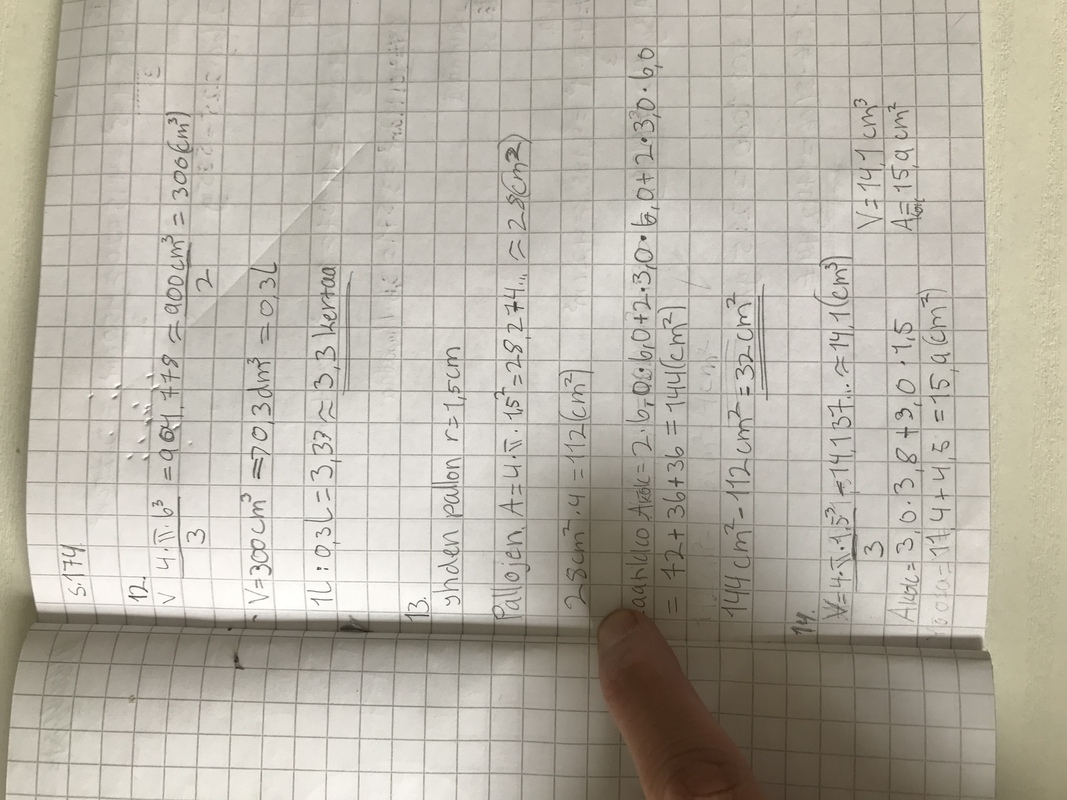 s.174
12.
V 4·π·6³/3 = 904,778 ≈ 900cm³/2 = 300(cm³)
V=300cm³ = 0,3dm³ = 0,3L
1L : 0,3L = 3,33 ≈ 3,3 kertaa
13.
yhden pallon r=1,5cm
Pallojen A=4·π·1,5²=28,274... ≈ 28(cm²)
28cm²·4=112(cm²)
Akok=2·6,0·6,0+2·3,0·6,0+2·3,0·6,0
= 72+36+36=144(cm²)
144cm²-112cm²=32cm²
14.
V=4·π·1,5³/3=14,137...≈14,1(cm³) V=14,1cm³
Akok=3,0·3,8+3,0·1,5 Akok=15,9cm²
=11,4+4,5=15,9(cm²)